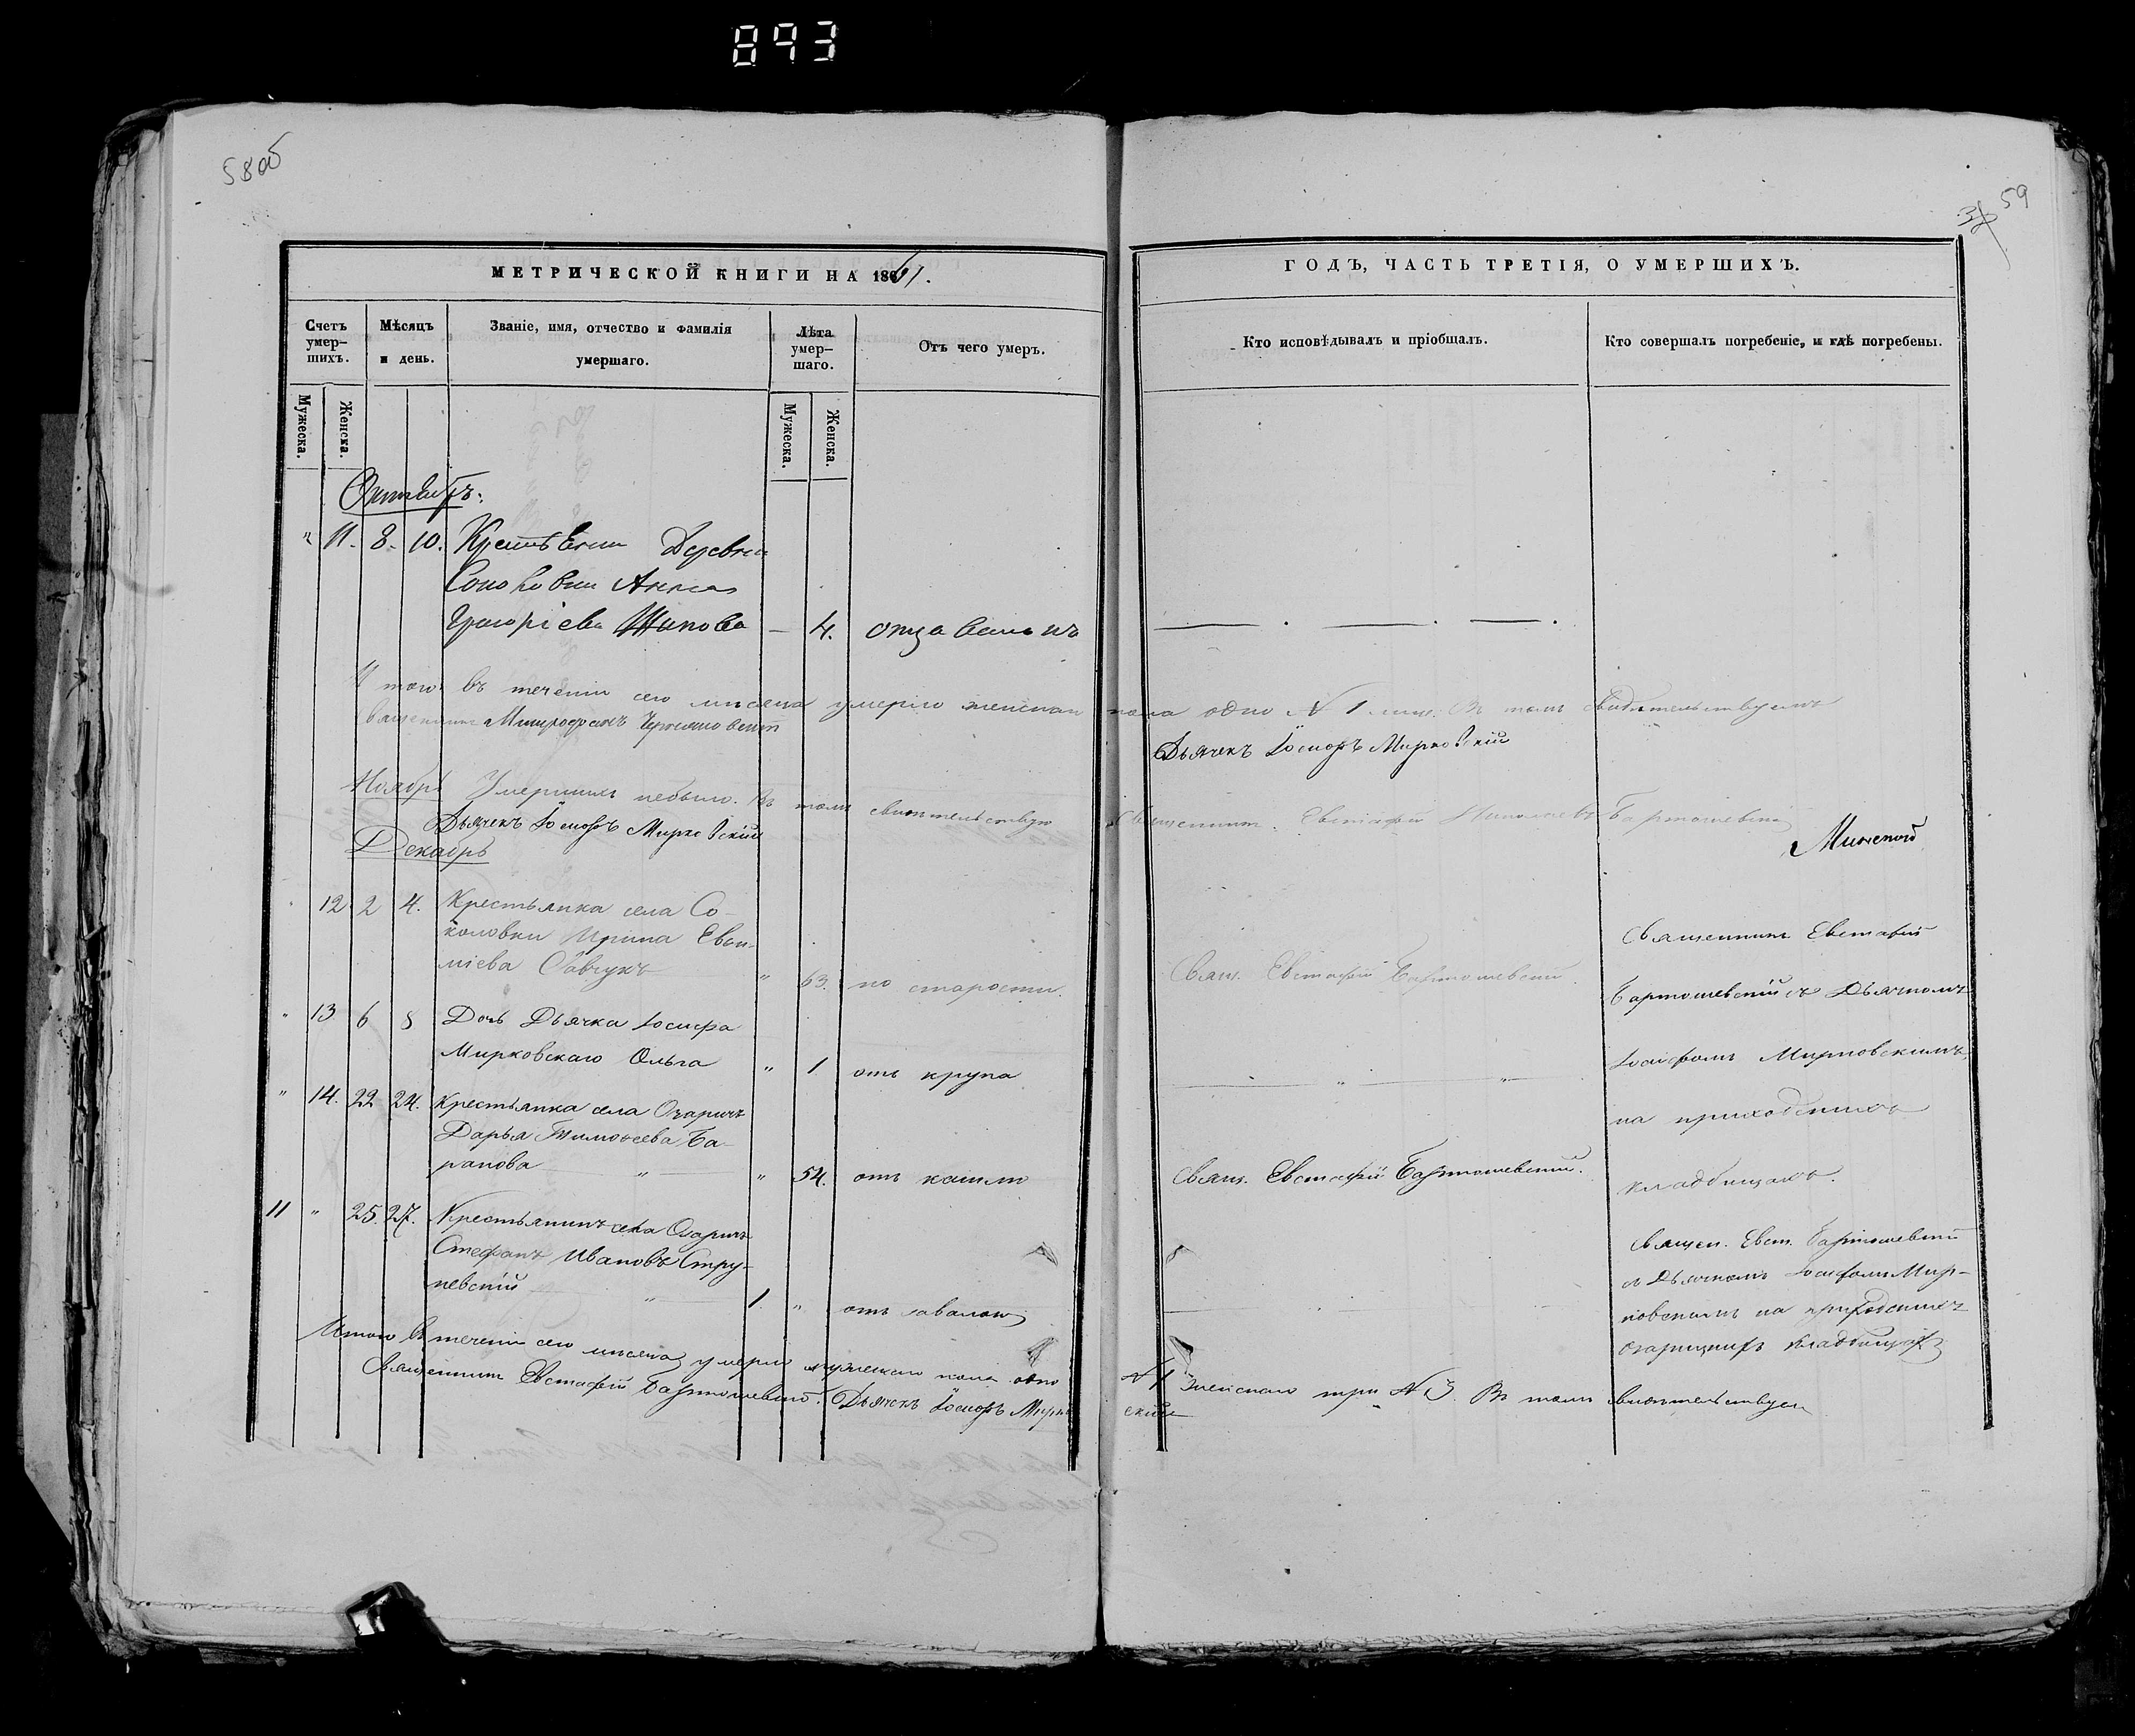 893
58об
59
МЕТРИЧЕСКОЙ КНИГИ НА 1861.
ГОДЪ, ЧАСТЬ ТРЕТІЯ, О УМЕРШИХЪ.
Счетъ умер-шихъ.
Мѣсяцъ и день.
Званіе, имя, отчество и фамилія умершаго.
Лѣта умер-шаго.
Отъ чего умеръ.
Кто исповѣдывалъ и пріобщалъ.
Кто совершалъ погребеніе, и гдѣ погребены.
Мужеска.
Женска.
Мужеска.
Женска.
Октябрь.
" 11. 8. 10. Деревни
Соколовки Анна
Григоріева — 4.
въ теченіи сего мѣсяца умерло женскаго пола одно № 1. Въ томъ свидѣтельствуемъ
Священникъ Митрофанъ
Дьячекъ Іосифъ Мирковскій
Ноябрь Умершихъ небыло. Въ томъ свидѣтельствую Священникъ Евстафій Бартошевскій
Дьячекъ Іосифъ Мирковскій
Декабрь
12 2 4. Крестьянка села Со-
коловки Ирина Евфи-
міева Савчукъ " 63. по старости.
Свящ. Евстафій Бартошевскій.
Священникъ Евстафій
Бартошевскій съ Дьячкомъ
Іосифомъ Мирковскимъ,
на приходскихъ
кладбищахъ.
" 13 6 8 Дочь Дьячка Іосифа
Мирковскаго Ольга " 1 отъ крупа
" 14. 22 24. Крестьянка села Озаричъ
Дарья Тимоѳеева Ба-
ранова " " 54. отъ кашлю
Свящ. Евстафій Бартошевскій.
11 " 25. 27. Крестьянинъ села Озаричъ
Стефанъ Ивановъ Стру-
невскій " 1. " отъ
Священ. Евст. Бартошевскій
съ Дьячкомъ Іосифомъ Мир-
ковскимъ на приходскихъ
кладбищахъ
Итого въ теченіи сего мѣсяца умерло мужескаго пола одно № 1 женскаго три № 3. Въ томъ свидѣтельствуем
Священникъ Евстафій Бартошевскій. Дьячекъ Іосифъ Мирковскій